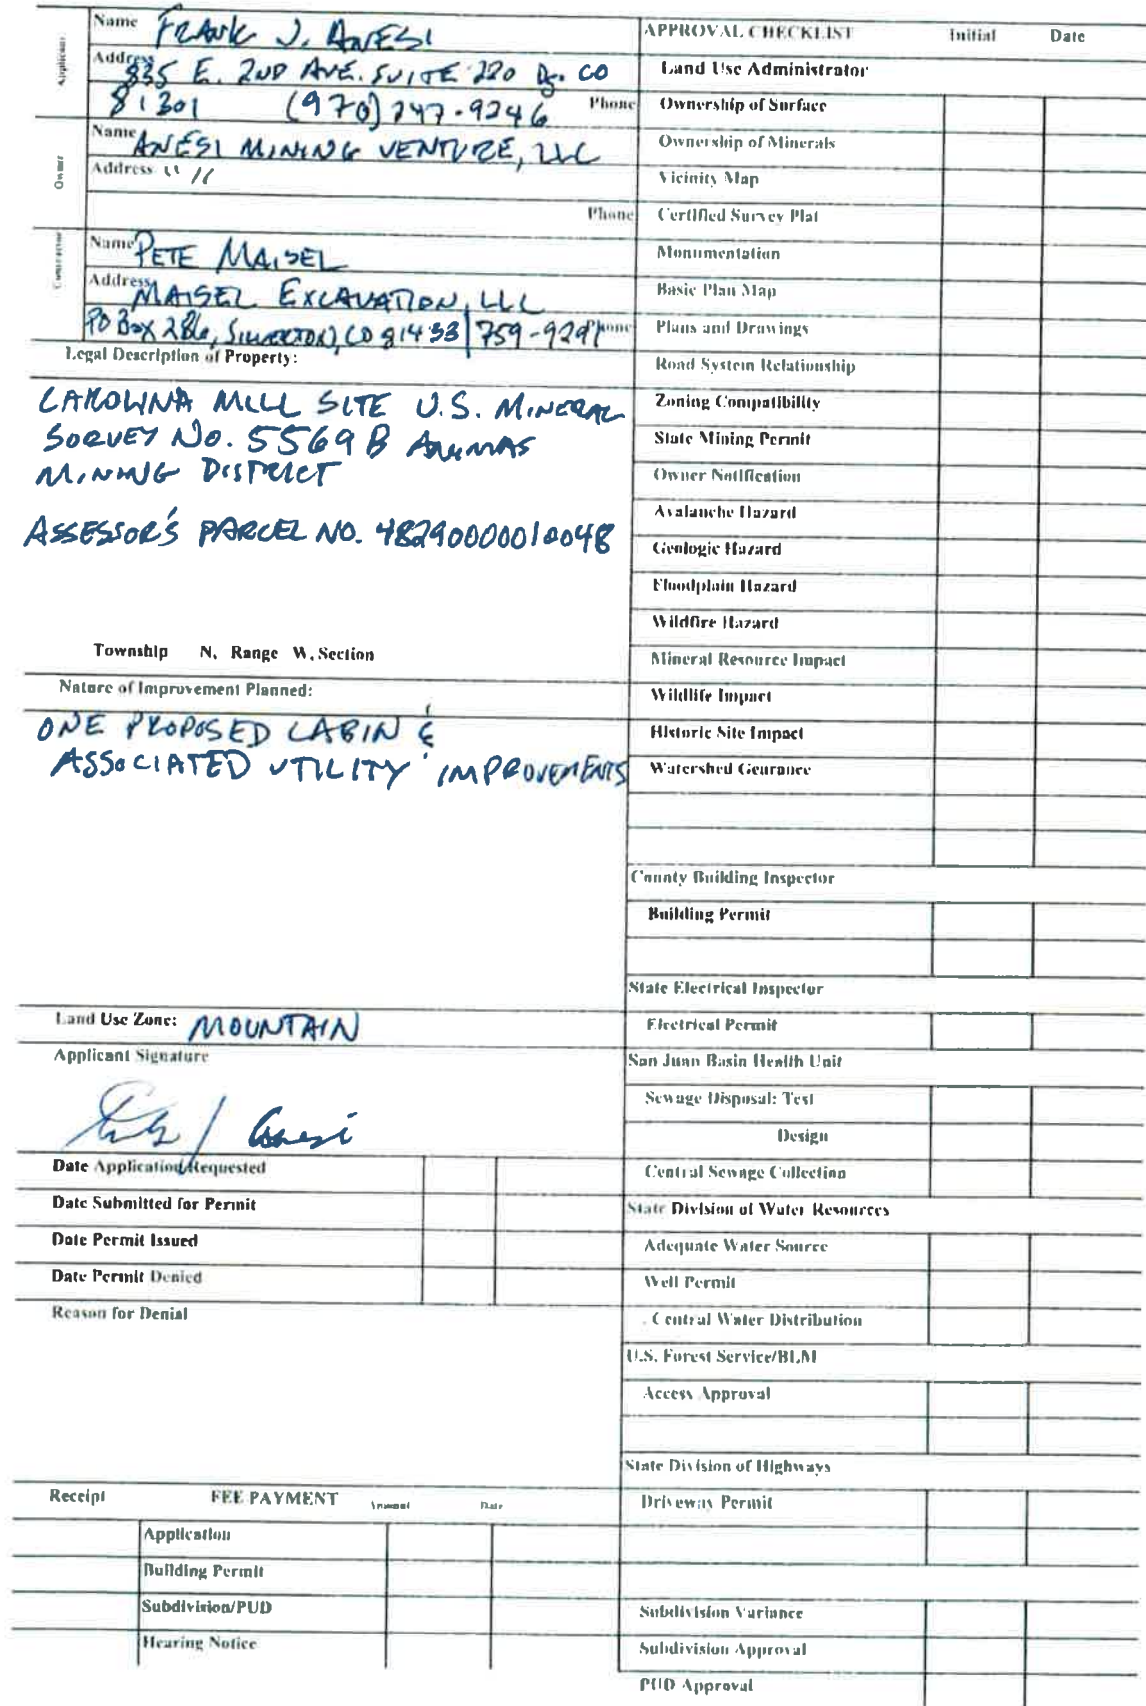 Applicant
Name FRANK J. ANESI
Address 835 E. 2ND AVE. SUITE 220 Dgo. CO
81301 (970) 247-9246 Phone
Owner
Name ANESI MINING VENTURE, LLC
Address " "
Phone
Contractor
Name PETE MAISEL
Address MAISEL EXCAVATION, LLC
PO Box 286, SILVERTON, CO 81433 759-9291 Phone
Legal Description of Property:
CAROLINA MILL SITE U.S. MINERAL
SURVEY NO. 5569B ANIMAS
MINING DISTRICT
ASSESSOR'S PARCEL NO. 48290000010048
Township N, Range W, Section
Nature of Improvement Planned:
ONE PROPOSED CABIN &
ASSOCIATED UTILITY IMPROVEMENTS
Land Use Zone: MOUNTAIN
Applicant Signature
Date Application Requested
Date Submitted for Permit
Date Permit Issued
Date Permit Denied
Reason for Denial
Receipt FEE PAYMENT Amount Date
Application
Building Permit
Subdivision/PUD
Hearing Notice
APPROVAL CHECKLIST Initial Date
Land Use Administrator
Ownership of Surface
Ownership of Minerals
Vicinity Map
Certified Survey Plat
Monumentation
Basic Plan Map
Plans and Drawings
Road System Relationship
Zoning Compatibility
State Mining Permit
Owner Notification
Avalanche Hazard
Geologic Hazard
Floodplain Hazard
Wildfire Hazard
Mineral Resource Impact
Wildlife Impact
Historic Site Impact
Watershed Gearance
County Building Inspector
Building Permit
State Electrical Inspector
Electrical Permit
San Juan Basin Health Unit
Sewage Disposal: Test
Design
Central Sewage Collection
State Division of Water Resources
Adequate Water Source
Well Permit
Central Water Distribution
U.S. Forest Service/BLM
Access Approval
State Division of Highways
Driveway Permit
Subdivision Variance
Subdivision Approval
PUD Approval